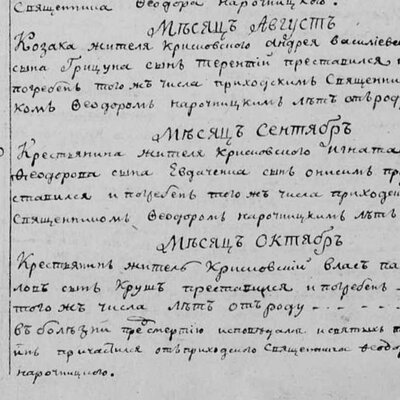 Священника Феодора нарочицкого.
Мѣсяцъ Августъ
Козака жителя Крисовского Андрея Василіева
сына Грицуна сынъ терентій преставился и
погребенъ того жъ числа приходскимъ Священни
комъ Феодоромъ нарочицкимъ лѣтъ отъ роду
Мѣсяцъ Сентябръ
Крестьянина жителя Крисовского игната
Феодорова сына сынъ онисимъ пре
ставился и погребенъ того жъ числа приходски
Священникомъ Феодоромъ нарочицкимъ лѣтъ
Мѣсяцъ Октябръ
Крестьянинъ житель Крисовскій власъ па
ловъ сынъ Крушъ преставился и погребенъ
того жъ числа лѣтъ отъ роду
въ болѣзни пред смертію исповѣданъ и святыхъ
инъ причастился отъ приходского Священника Феодо
нарочицкого.